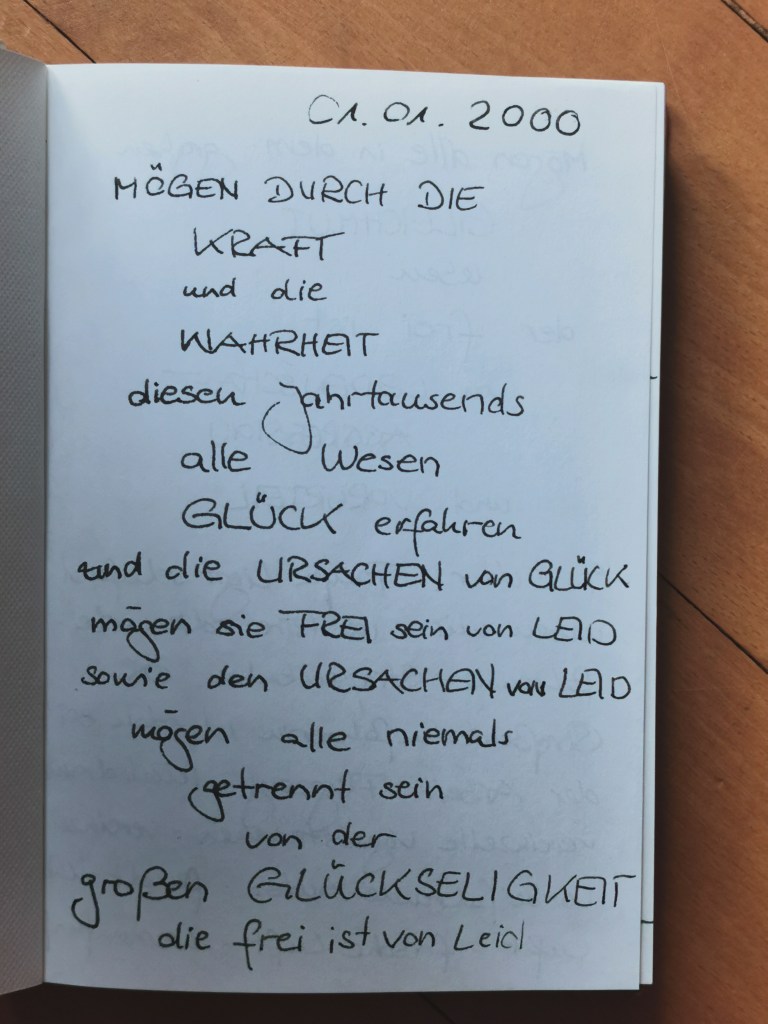 01.01.2000
MÖGEN DURCH DIE
KRAFT
und die
WAHRHEIT
diesen Jahrtausends
alle Wesen
GLÜCK erfahren
und die URSACHEN von GLÜCK
mögen sie FREI sein von LEID
sowie den URSACHEN von LEID
mögen alle niemals
getrennt sein
von der
großen GLÜCKSELIGKEIT
die frei ist von Leid